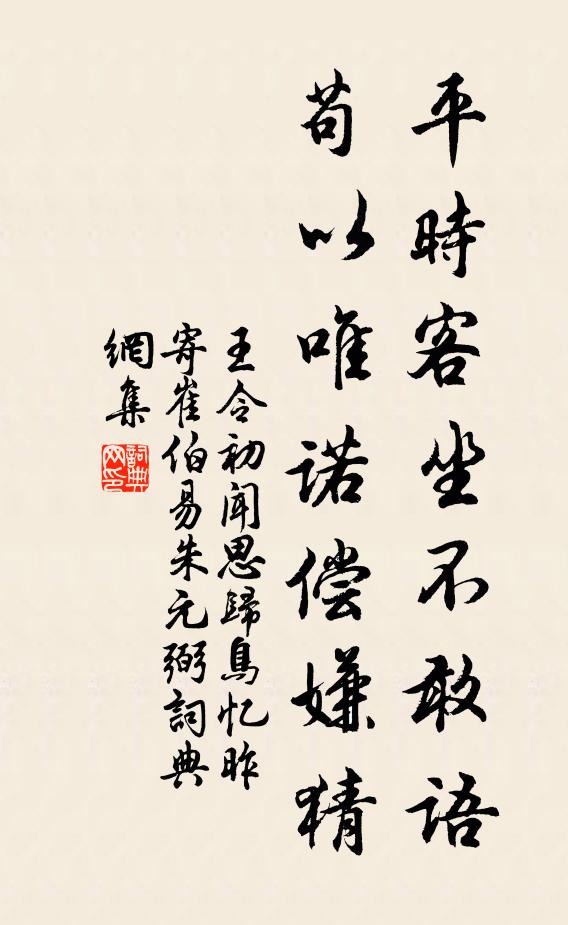 平時客坐不敢語
苟以唯诺偿嫌猜
王令初闻思歸鳥忆昨
寄崔伯易朱元弼詞典
網集
詞典网印